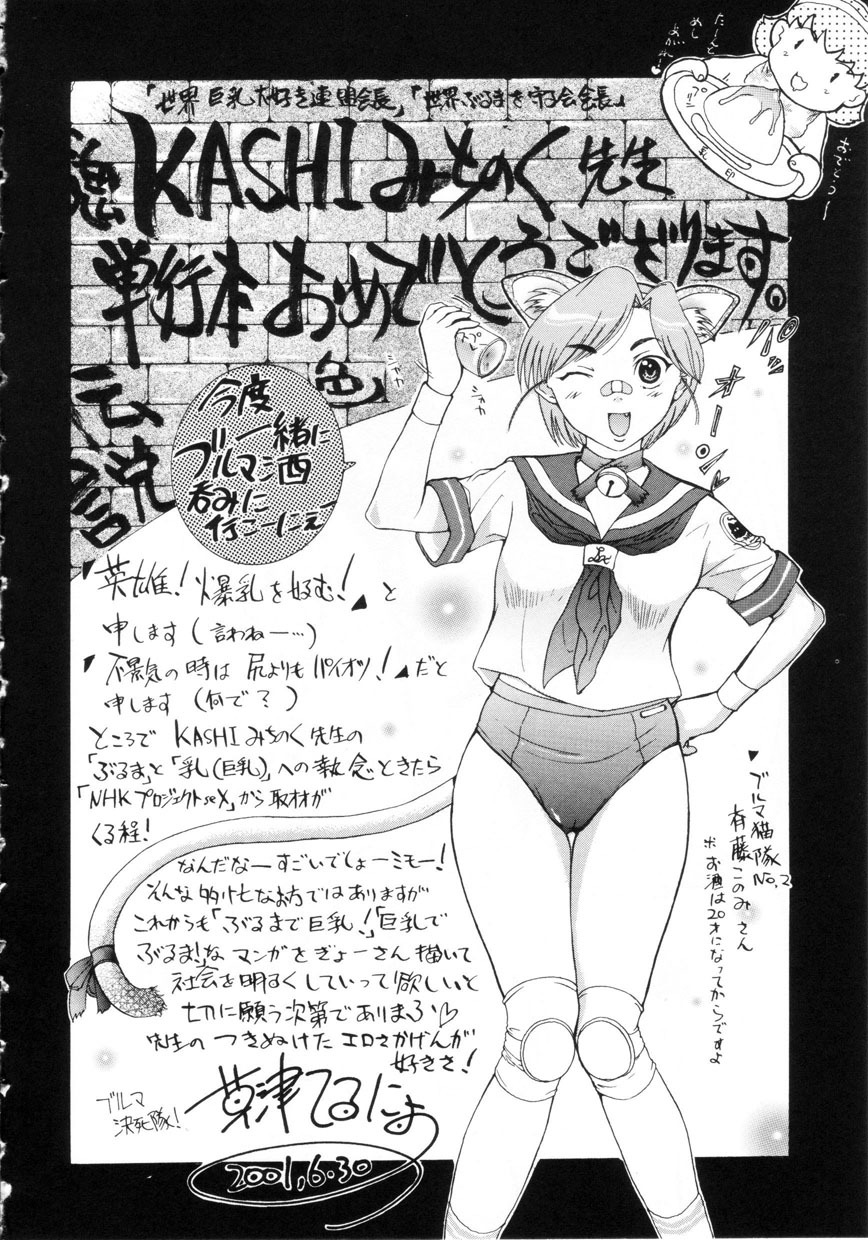 「世界巨乳大好き連盟会長」「世界ぶるまを守る会会長」
KASHIみちのく先生
単行本おめでとうござります。
伝説
色
今度
一緒に
ブルマ酒
呑みに
行こーにえー
オーーン
シャカ
シャカ
「英雄!爆乳を好む!」と
申します(言わねー…)
「不景気の時は尻よりもパイオツ!」だと
申します(何で?)
ところでKASHIみちのく先生の
「ぶるま」と「乳(巨乳)」への執念ときたら
「NHKプロジェクトseX」から取材が
くる程!
なんだなーすごいでしょーミモー!
そんな先生なお方ではありますが
これからも「ぶるまで巨乳!」「巨乳で
ぶるま!」なマンガをぎょーさん描いて
社会を明るくしていって欲しいと
切に願う次第でありまふ
先生のつきぬけたエロさかげんが
好きさ!
ブルマ
決死隊!
草津てるにょ
2001.6.30
ブルマ猫隊No.2
斉藤このみさん
※お酒は20才になってからですよ
たーんと
めし
あがれ
乳
印